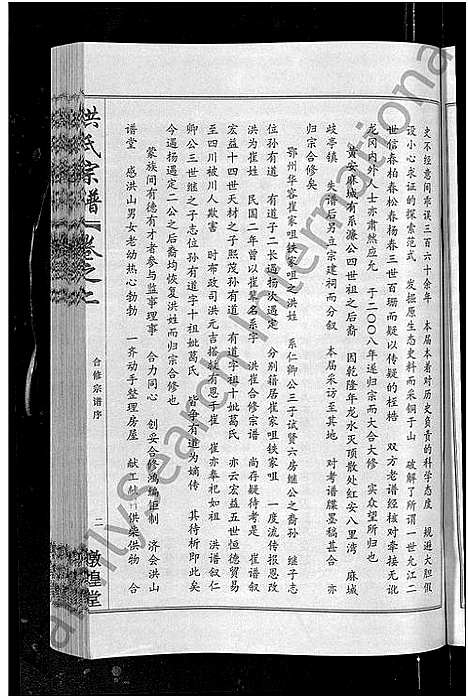 史不经意间乖误三百六十余年　本届本着对历史负责的科学态度　规避大胆假
设小心求证的探索范式　发掘原生态史料而采铜于山　破解了所谓一世允江二
世信春柏春松春杨春三世百珊而疑以传疑的桎梏　双方老谱经核对牵接无讹
龙冈内外人士亦肃然应允　于二〇〇八年遂归宗而大合大修　实众望所归也
黄安麻城有系濂公四世祖之后裔　因乾隆年龙水灭顶散处红安八里湾　麻城
歧亭镇　失谱后另立宗建祠而分叙　本届采访至其地　对考谱牒墨稿甚合　亦
归宗合修矣
鄂州华容崔家咀铁家咀之洪姓　系仁卿公三子试贤六房继公之裔孙　继子志
位孙有道　有道子二长遇杨次遇定　分别籍居崔家咀铁家咀　一度流传报恩改
洪为崔姓　民国二年曾以崔某名系字　洪崔合修宗谱　尚存疑待考是　崔谱叙
宏益十四世天材之子熙茂孙有道　有道字祖十妣葛氏　亦云宏益五世恒德贸易
至四川被川人欺害　时布政司洪元吉搭救有恩于崔　崔亦奉祀如祖　洪谱叙仁
卿公三世继之子志位孙有道字十祖妣葛氏　皆争有道为嫡传　其待析即此矣
今遇杨遇定二公之后裔均恢复洪姓而归宗合修也
蒙族间有德有才者参与监事理事　合力同心　创妥合修鸿编钜制　济会洪山
谱堂　感洪山男女老幼热心勃勃　一齐动手整理房屋　献工献川供柴供物　合
洪氏宗谱
卷之上
合修宗谱序
二
敦煌堂